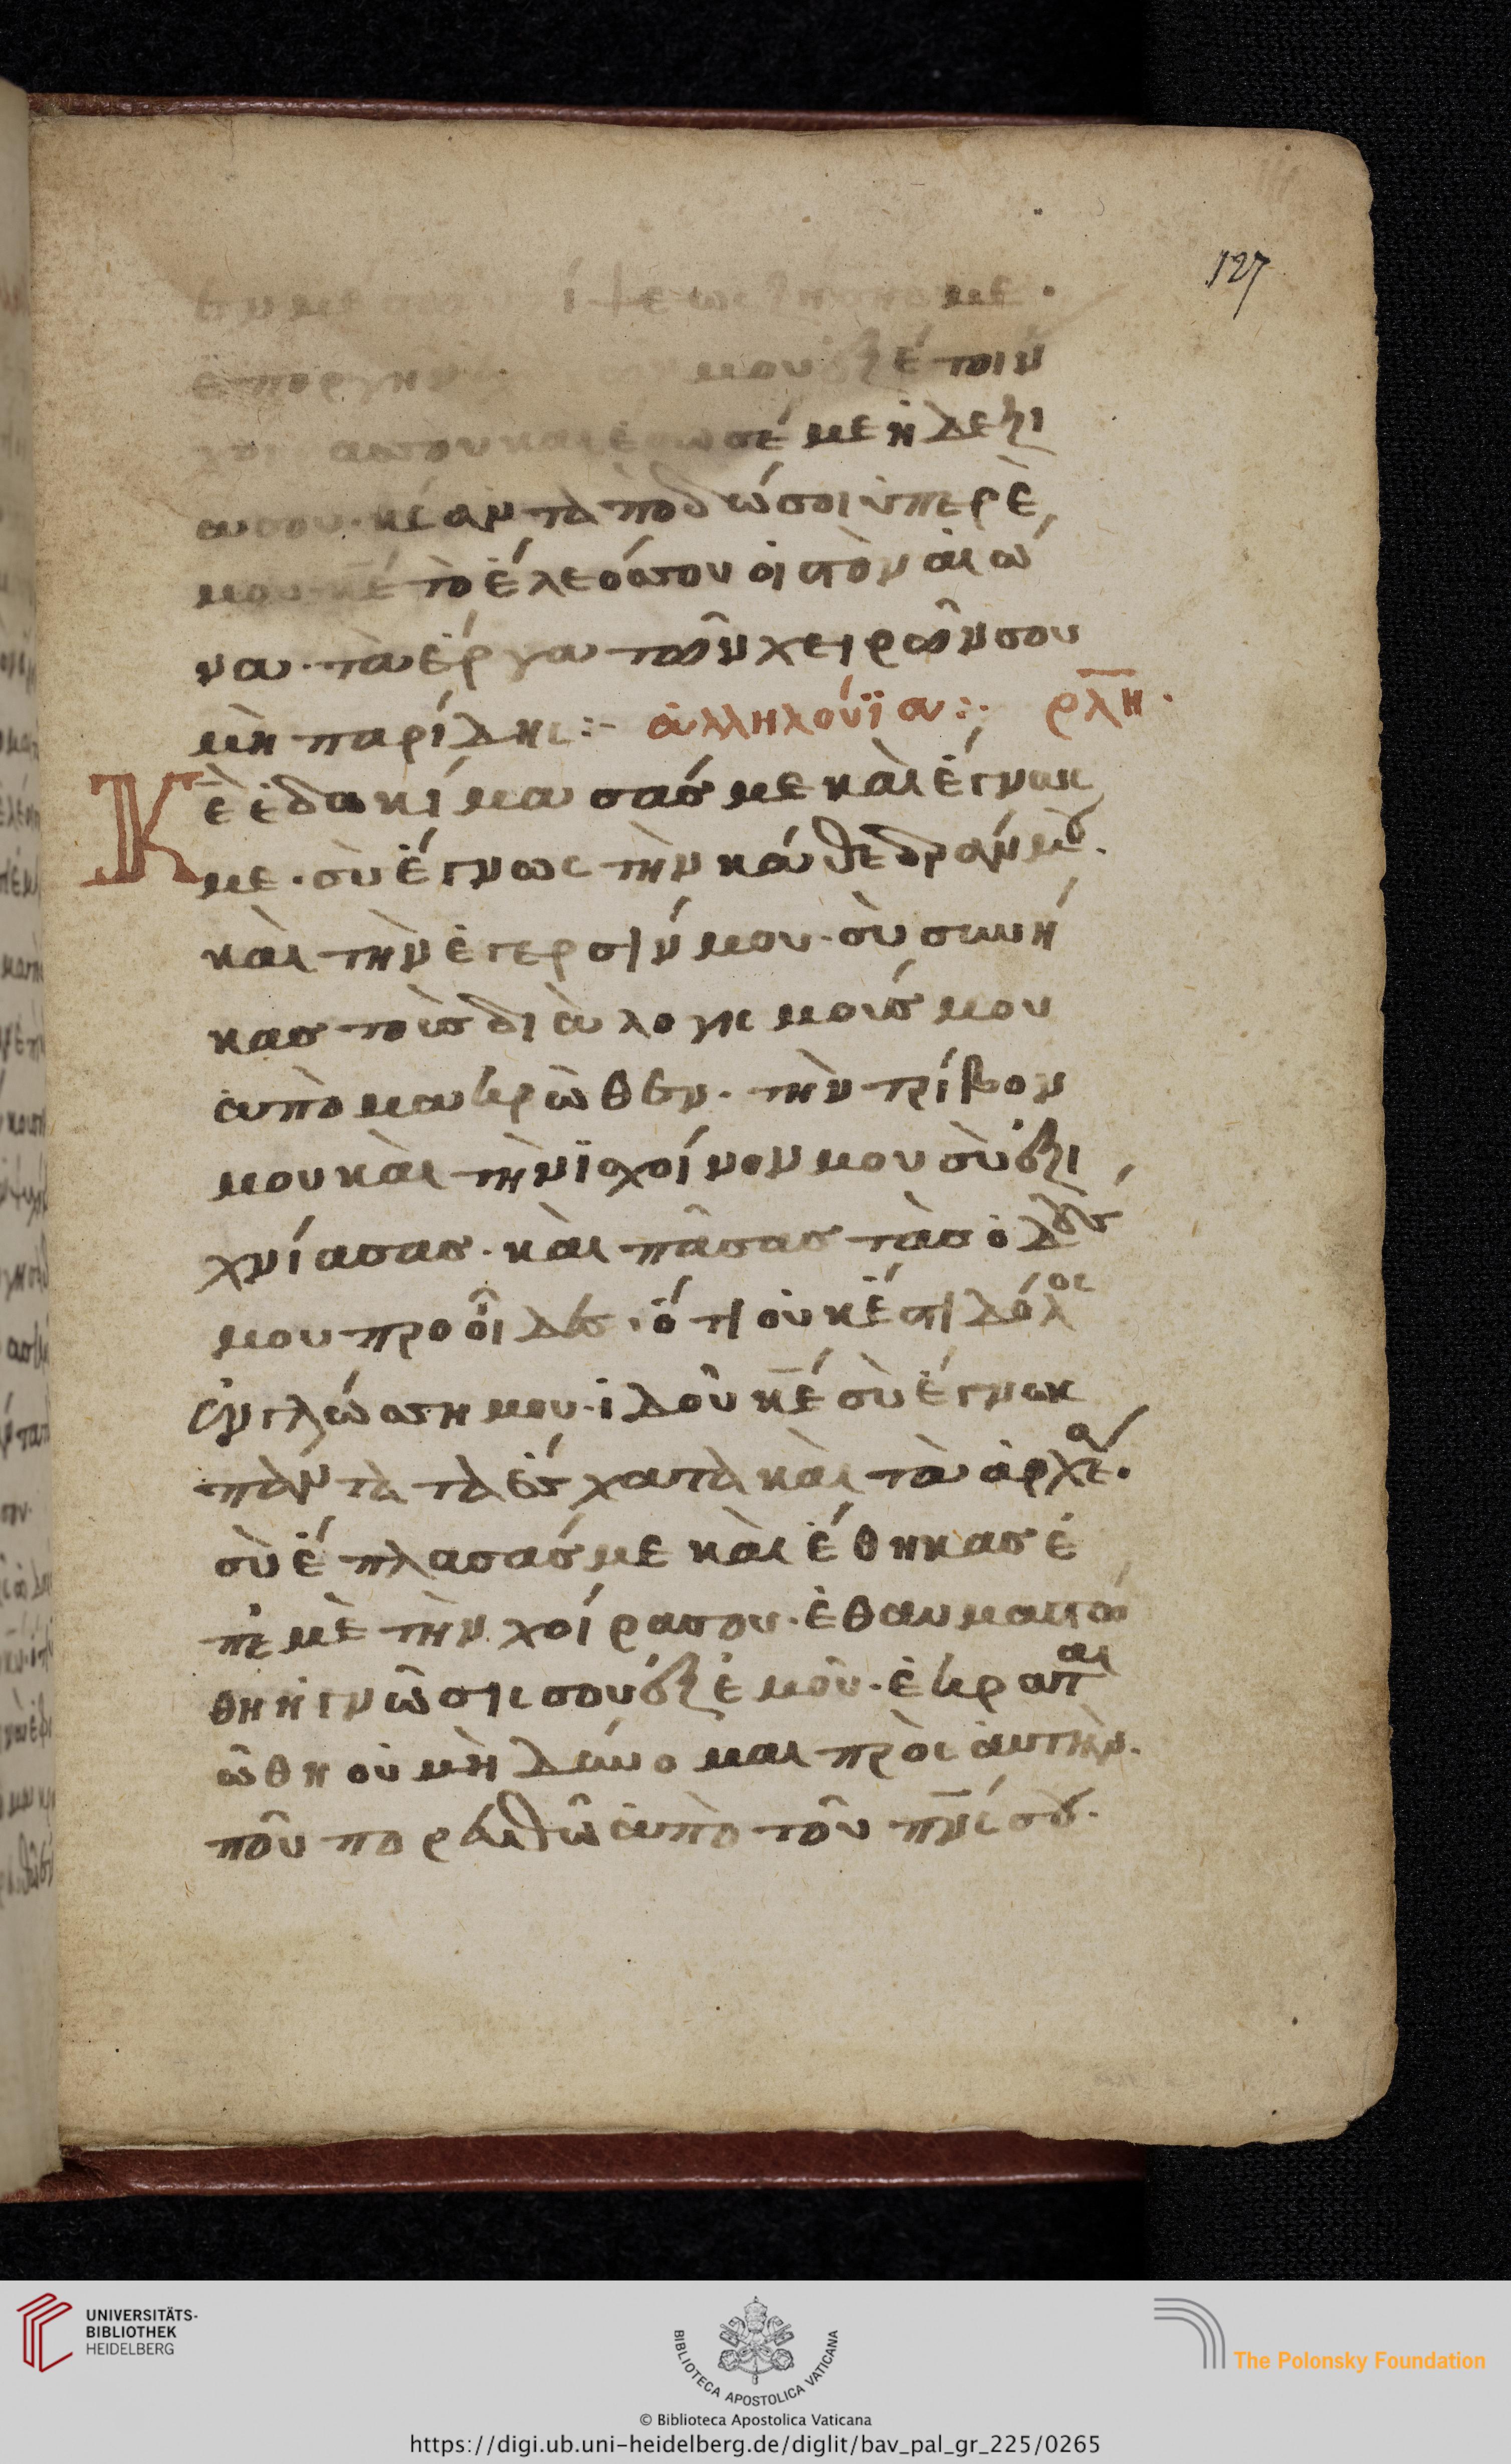 127
με ·
μου ἐξ ἐποιν
σου και ἐσωσέ με ἡ δεξι
α σου · κς ἀνταποδώσοι ὑπερ ἐ
μου κὲ τὸ ἔλεός σου εἰς τὸν αἰώ
να · τὰ ἔργα τῶν χειρῶν σου
μὴ παρίδης :- ἀλληλούϊα :· ρλη ·
Κὲ ἐδωκίμασάς με καὶ ἔγνως
με · σὺ ἔγνως τὴν κάθεδράν μου ·
καὶ τὴν ἔγερσίν μου · σὺ συνῆ
κας τοὺς διὰλογισμούς μου
ἀπὸ μακρὼθεν · τὴν τρίβον
μου καὶ τὴν σχοίνον μου σὺ ἐξι
χνίασας · καὶ πᾶσας τὰς ὁδούς
μου προοῖδες · ὅτι οὐκ ἔστι δόλος
ἐν γλώσση μου · ἰδοῦ κέ σὺ ἔγνως
πάντα τὰ ἔσχατα καὶ τὰ ἀρχαῖα ·
σὺ ἔπλασάς με καὶ ἔθηκας ἐ
π ἐμὲ τὴν χοίρα σου · ἐθαυμαστώ
θη ἡ γνῶσις σου ἐξ ἐμοῦ · ἐκραται
ῶθη οὐ μὴ δύνομαι πρὸς ἀυτὴν ·
ποῦ πορευθῶ ἀπὸ τοῦ πνς σου ·
UNIVERSITÄTS-
BIBLIOTHEK
HEIDELBERG
BIBLIOTECA APOSTOLICA VATICANA
The Polonsky Foundation
© Biblioteca Apostolica Vaticana
https://digi.ub.uni-heidelberg.de/diglit/bav_pal_gr_225/0265